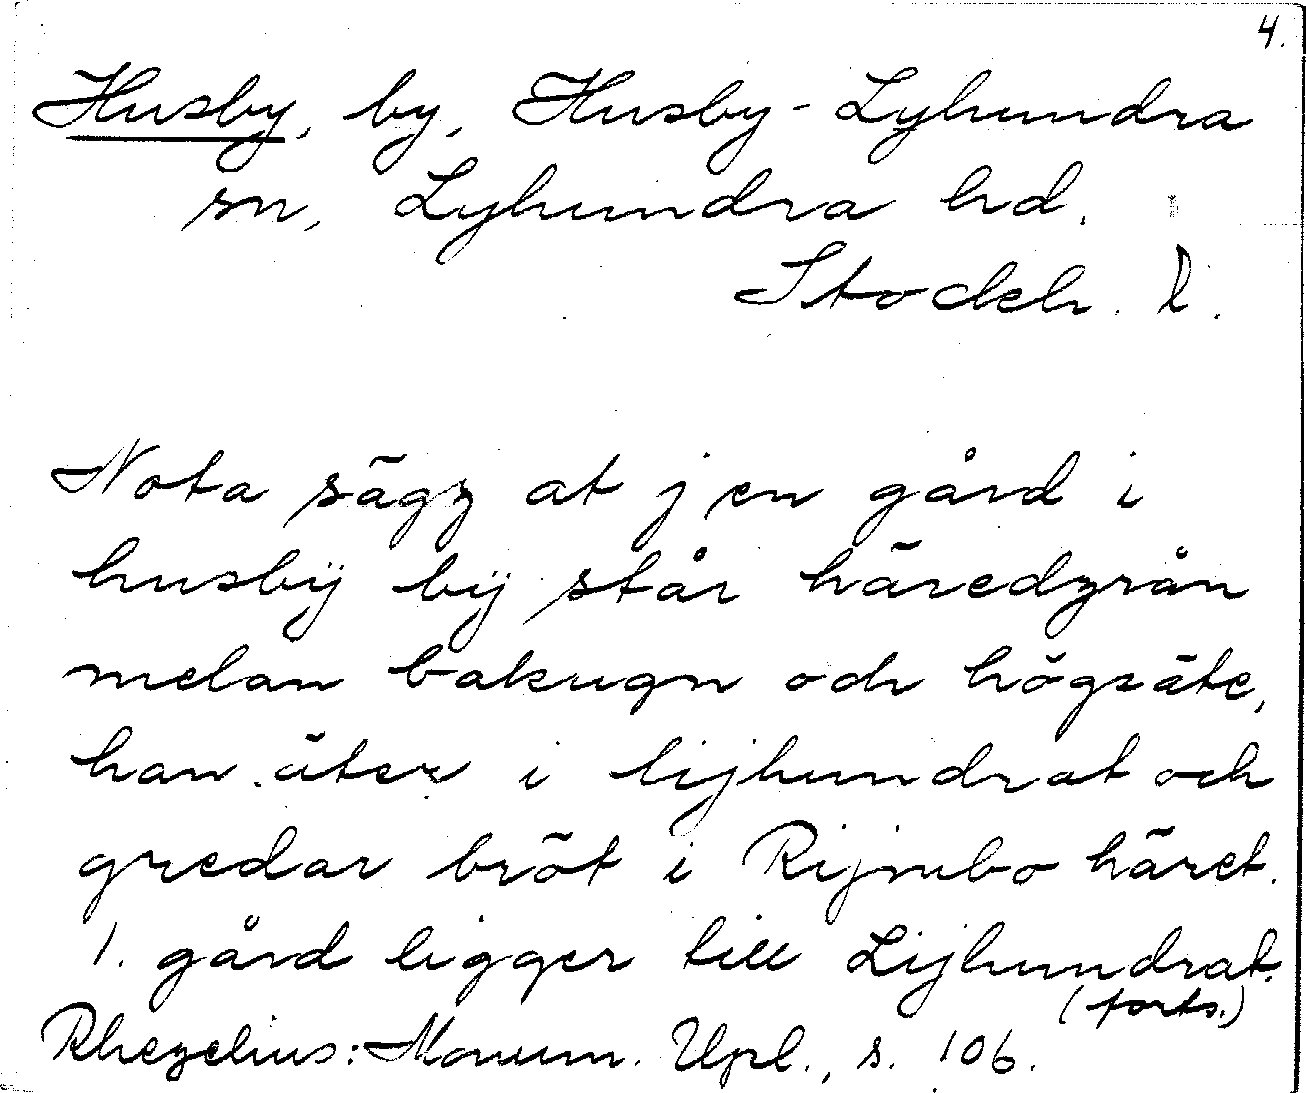 4.
Husby, by, Husby-Lyhundra
sn, Lyhundra hd.
Stockh. l.
Nota sägz at j en gård i
husbÿ bÿ står häredzrån
melan bakugn och högsäte,
han äter i lijhundrat och
gredar bröt i Rijmbo häret.
1. gård ligger till Lijhundrat.
(forts.)
Rhezelius: Monum. Upl., s. 106.